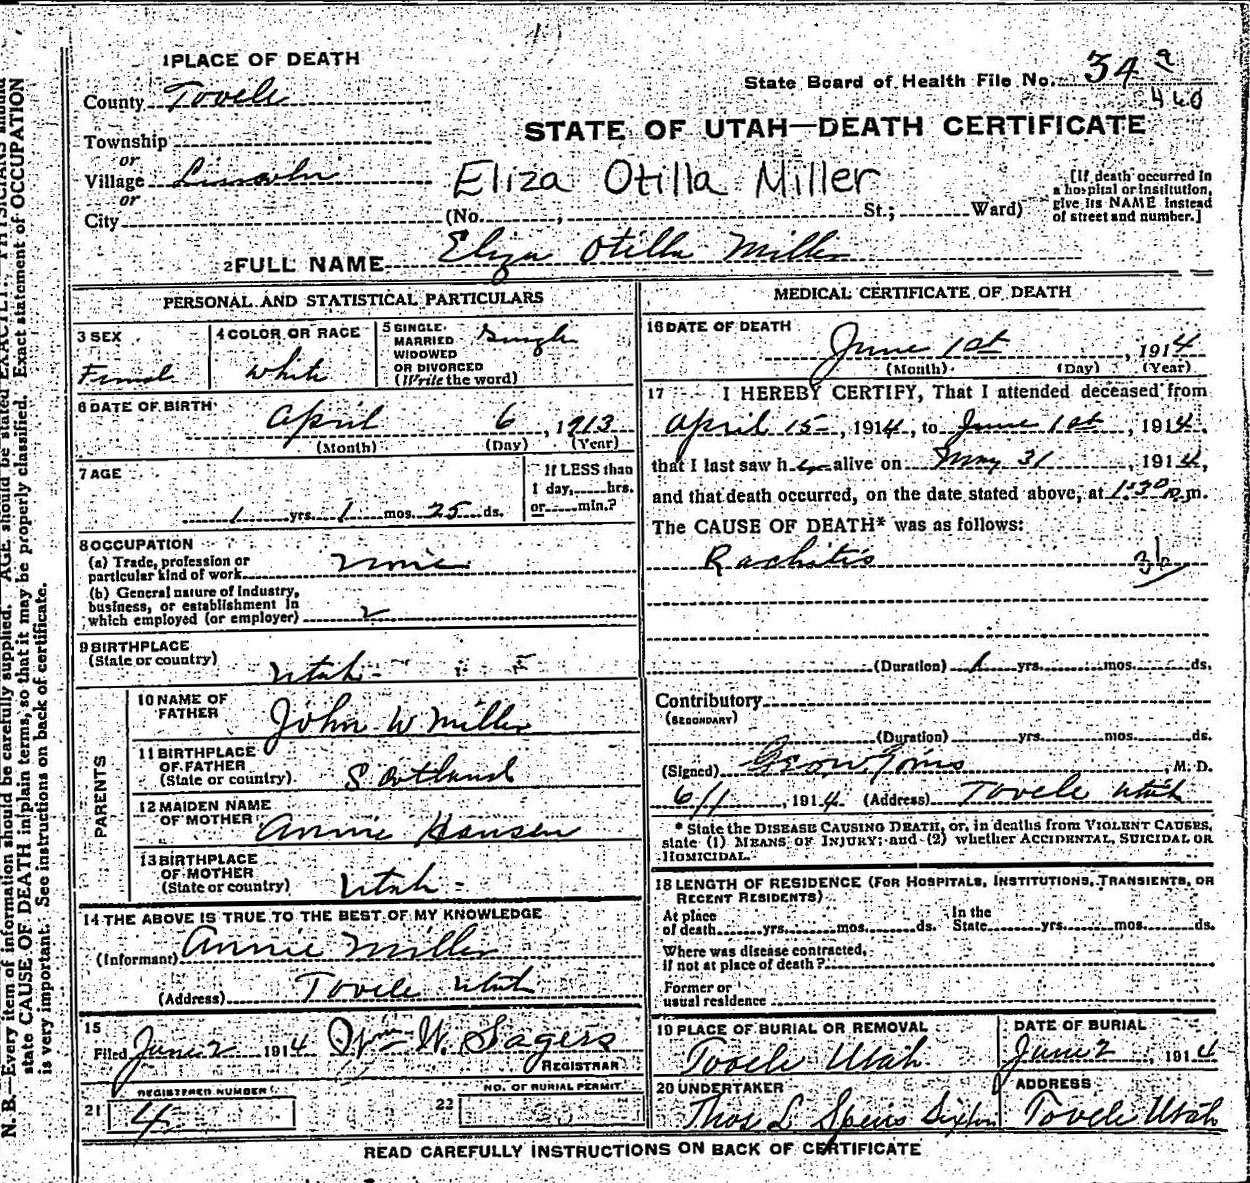 1 PLACE OF DEATH
County Tooele
State Board of Health File No. 34 a
460
Township
or
Village Lincoln
or
City
STATE OF UTAH—DEATH CERTIFICATE
Eliza Otilla Miller
(No. , St.; Ward)
[If death occurred in
a hospital or institution,
give its NAME instead
of street and number.]
2 FULL NAME Eliza Otilla Miller
PERSONAL AND STATISTICAL PARTICULARS
3 SEX
Femal
4 COLOR OR RACE
White
5 SINGLE
MARRIED
WIDOWED
OR DIVORCED
(Write the word)
Single
6 DATE OF BIRTH
April 6, 1913
(Month) (Day) (Year)
7 AGE
1 yrs. 1 mos. 25 ds.
If LESS than
1 day, hrs.
or min.?
8 OCCUPATION
(a) Trade, profession or
particular kind of work None
(b) General nature of industry,
business, or establishment in
which employed (or employer)
9 BIRTHPLACE
(State or country) Utah
PARENTS
10 NAME OF
FATHER John W Miller
11 BIRTHPLACE
OF FATHER
(State or country) Scotland
12 MAIDEN NAME
OF MOTHER Annie Hansen
13 BIRTHPLACE
OF MOTHER
(State or country) Utah
14 THE ABOVE IS TRUE TO THE BEST OF MY KNOWLEDGE
(Informant) Annie Miller
(Address) Tooele Utah
15
Filed June 2 1914 Wm W. Sagers
REGISTRAR
REGISTERED NUMBER
21 4
NO. OF BURIAL PERMIT
22
MEDICAL CERTIFICATE OF DEATH
16 DATE OF DEATH
June 1st, 1914
(Month) (Day) (Year)
17 I HEREBY CERTIFY, That I attended deceased from
April 15, 1914, to June 1st, 1914,
that I last saw her alive on May 31, 1914,
and that death occurred, on the date stated above, at 1:30 m.
The CAUSE OF DEATH* was as follows:
Rachitis 36
(Duration) 1 yrs. mos. ds.
Contributory
(SECONDARY)
(Duration) yrs. mos. ds.
(Signed) , M. D.
6/1, 1914 (Address) Tooele Utah
* State the DISEASE CAUSING DEATH, or, in deaths from VIOLENT CAUSES,
state (1) MEANS OF INJURY; and (2) whether ACCIDENTAL, SUICIDAL OR
HOMICIDAL.
18 LENGTH OF RESIDENCE (FOR HOSPITALS, INSTITUTIONS, TRANSIENTS, OR
RECENT RESIDENTS)
At place
of death yrs. mos. ds.
In the
State yrs. mos. ds.
Where was disease contracted,
if not at place of death?
Former or
usual residence
19 PLACE OF BURIAL OR REMOVAL
Tooele Utah
DATE OF BURIAL
June 2, 1914
20 UNDERTAKER
Thos L Speirs Sexton
ADDRESS
Tooele Utah
READ CAREFULLY INSTRUCTIONS ON BACK OF CERTIFICATE
N. B.—Every item of information should be carefully supplied. AGE should be stated EXACTLY. PHYSICIANS should
state CAUSE OF DEATH in plain terms, so that it may be properly classified. Exact statement of OCCUPATION
is very important. See instructions on back of certificate.